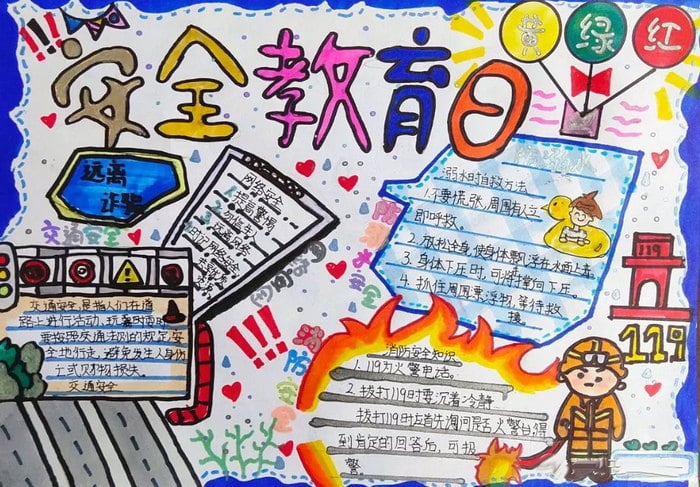 安全教育日
黄 绿 红
远离
诈骗
网络安全
1.提高警惕
交通安全
交通安全,是指人们在道
路上进行活动、玩耍时,要
按照交通法则的规定,安
全地行走,避免发生人身伤
亡或财物损失。
交通安全
溺水时自救方法
1.不要慌张,周围有人立
即呼救。
2.放松全身,使身体飘浮在水面上
3.身体下压时,可将掌向下压。
4.抓住周围漂浮物,等待救
援
防溺水安全
消防安全
消防安全知识
1.119为火警电话。
2.拨打119时要沉着冷静
拨打119时应首先询问是否火警台得
到肯定的回答后,可报
警
119
119